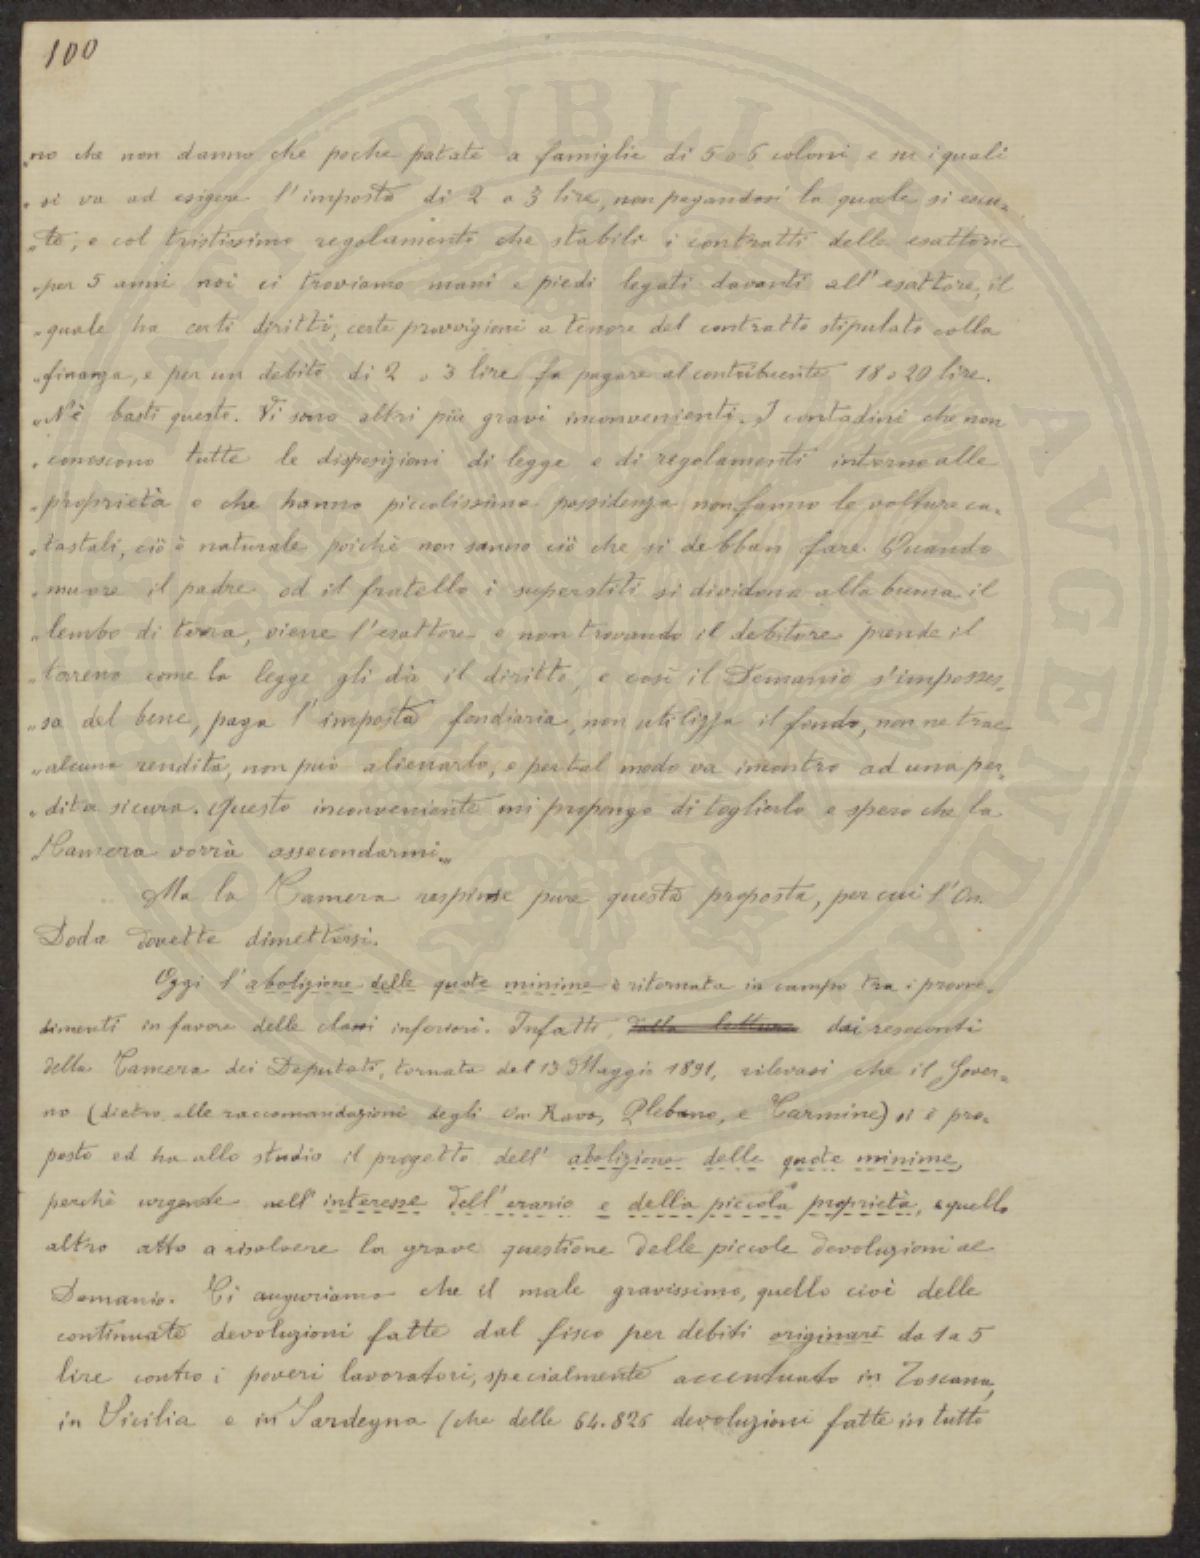 100
„no che non danno che poche patate a famiglie di 5 o 6 coloni e su i quali
„si va ad esigere l'imposta di 2 o 3 lire, non pagandosi la quale si escu-
„te, e col tristissimo regolamento che stabilì i contratti delle esattorie
„per 5 anni noi ci troviamo mani e piedi legati davanti all'esattore, il
„quale ha certi diritti, certe provvigioni a tenore del contratto stipulato colla
„finanza, e per un debito di 2 o 3 lire fa pagare al contribuente 18 o 20 lire.
„Nè basti questo. Vi sono altri più gravi inconvenienti. I contadini che non
„conoscono tutte le disposizioni di legge e di regolamenti intorno alle
„proprietà e che hanno piccolissima possidenza non fanno le volture ca-
„tastali, ciò è naturale poichè non sanno ciò che si debban fare. Quando
„muore il padre od il fratello i superstiti si dividono alla buona il
„lembo di terra, viene l'esattore e non trovando il debitore prende il
„terreno come la legge gli dà il diritto, e così il Demanio s'imposses-
„sa del bene, paga l'imposta fondiaria, non utilizza il fondo, non ne trae
„alcuna rendita, non può alienarlo, e per tal modo va incontro ad una per-
„dita sicura. Questo inconveniente mi propongo di toglierlo e spero che la
„Camera vorrà assecondarmi„
Ma la Camera respinse pure questa proposta, per cui l'On.
Doda dovette dimettersi.
Oggi l'abolizione delle quote minime è ritornata in campo tra i provve-
dimenti in favore delle classi inferiori. Infatti, dalla lettura dai resoconti
della Camera dei Deputati, tornata del 13 Maggio 1891, rilevasi che il Gover-
no (dietro alle raccomandazioni degli On Rava, Plebano, e Carmine) si è pro-
posto ed ha allo studio il progetto dell'abolizione delle quote minime,
perchè urgente nell'interesse dell'erario e della piccola proprietà, e quello
altro atto a risolvere la grave questione delle piccole devoluzioni al
Demanio. Ci auguriamo che il male gravissimo, quello cioè delle
continuate devoluzioni fatte dal fisco per debiti originari da 1 a 5
lire contro i poveri lavoratori, specialmente accentuato in Toscana,
in Sicilia e in Sardegna (che delle 64.826 devoluzioni fatte in tutto